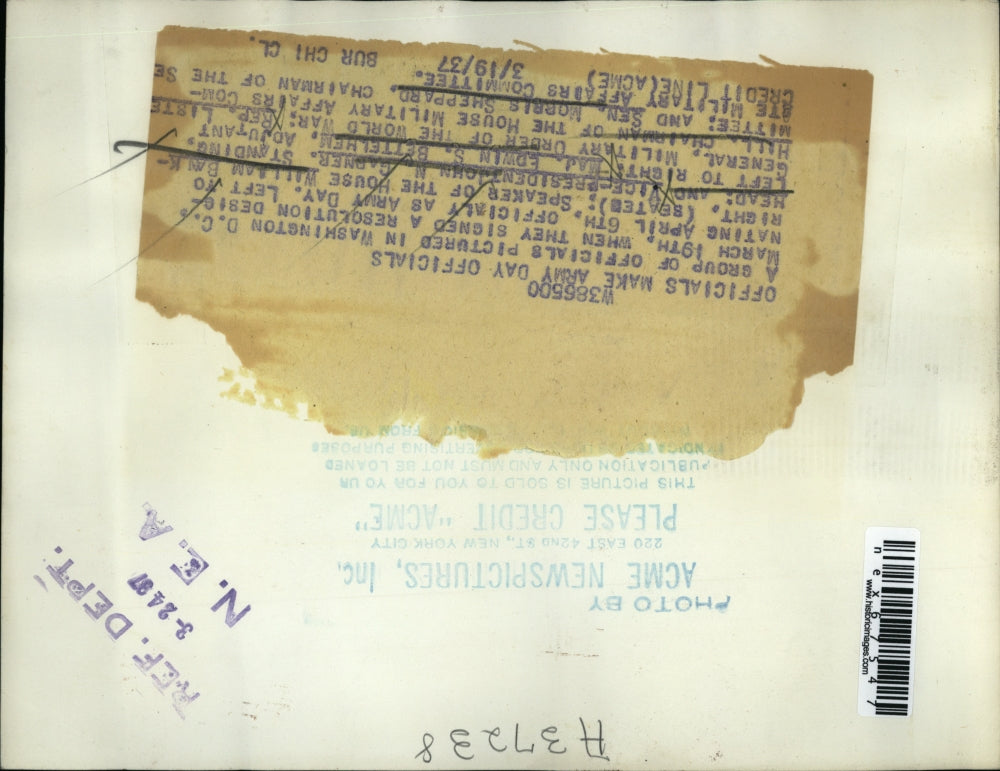 W386500
OFFICIALS MAKE ARMY DAY OFFICIALS
A GROUP OF OFFICIALS PICTURED IN WASHINGTON D.C.
MARCH 19TH. WHEN THEY SIGNED A RESOLUTION DESIG-
NATING APRIL 6TH. OFFICIALLY AS ARMY DAY. LEFT TO
RIGHT. (SEATED); SPEAKER OF THE HOUSE WILLIAM BANK-
HEAD; AND VICE-PRESIDENT JOHN N GARNER. STANDING.
LEFT TO RIGHT. MAJ. EDWIN S. BETTELHEM. ADJUTANT
GENERAL. MILITARY ORDER OF THE WORLD WAR; REP. LISTE
HILL. CHAIRMAN OF THE HOUSE MILITARY AFFAIRS COM-
MITTEE; AND SEN MORRIS SHEPPARD CHAIRMAN OF THE SE
ATE MILITARY AFFAIRS COMMITTEE.
CREDIT LINE(ACME) 3/19/37 BUR CHI CL.
PHOTO BY
ACME NEWSPICTURES, Inc.
220 EAST 42ND ST., NEW YORK CITY
PLEASE CREDIT "ACME"
THIS PICTURE IS SOLD TO YOU FOR YOUR
PUBLICATION ONLY AND MUST NOT BE LOANED
ADVERTISING PURPOSES
FROM US.
N. E. A.
3-24-37
REF. DEPT.
H37238
www.historicimages.com
nex67547